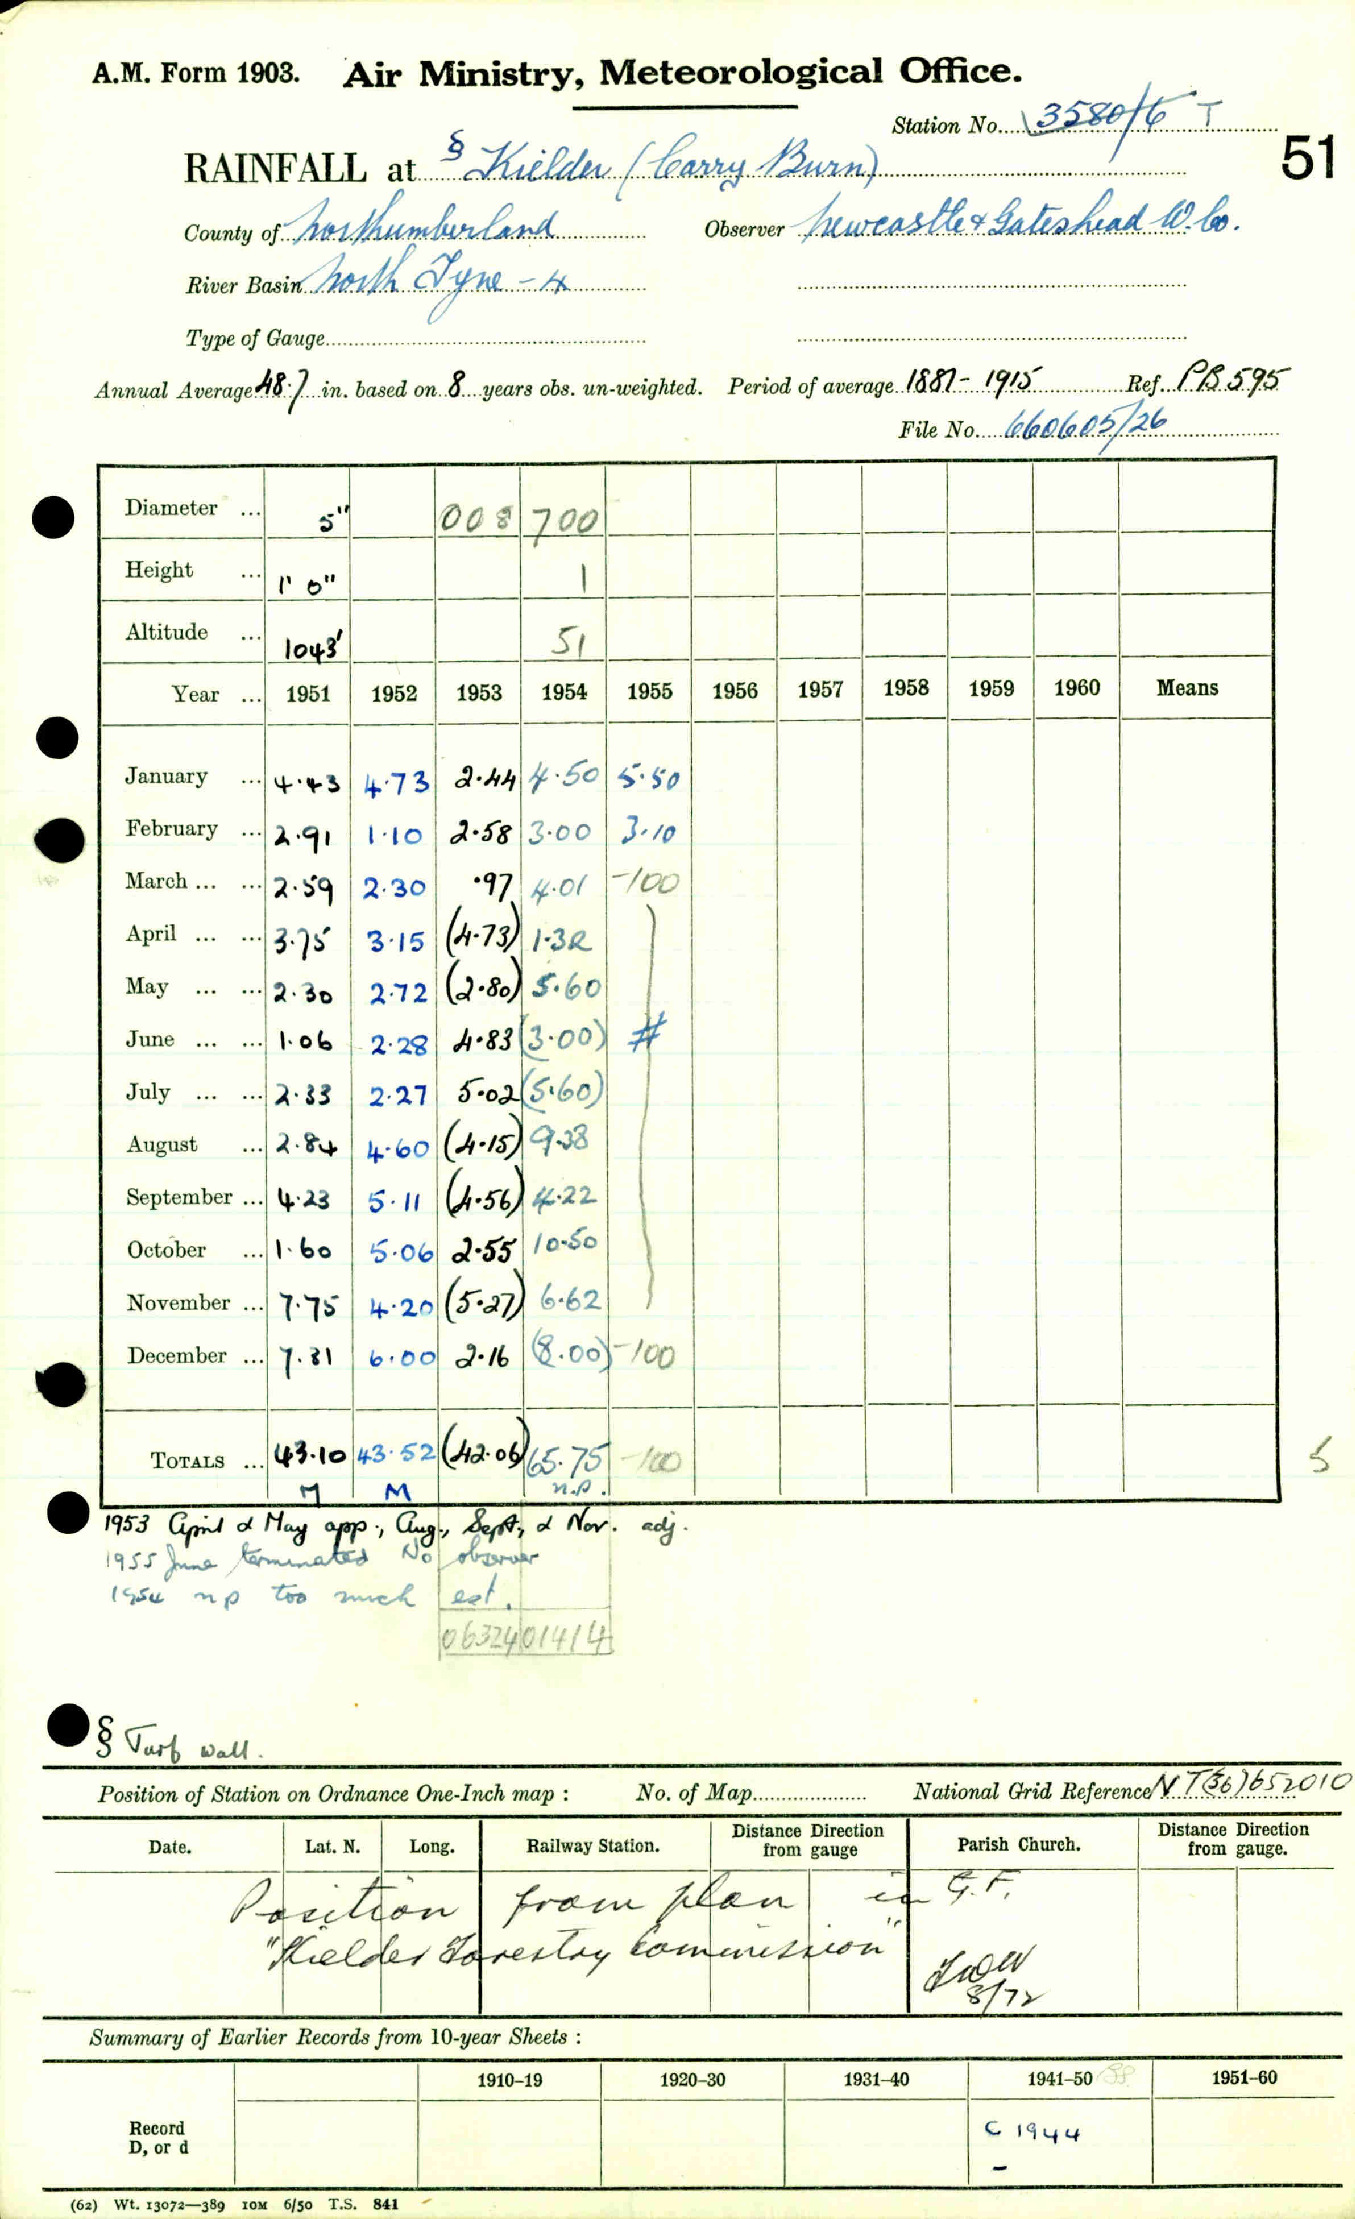 A.M. Form 1903. Air Ministry, Meteorological Office.
Station No. 3580/6 T
51
RAINFALL at § Kielder (Carry Burn)
County of Northumberland Observer Newcastle & Gateshead W. Co.
River Basin North Tyne - 4
Type of Gauge
Annual Average 48.7 in. based on 8 years obs. un-weighted. Period of average 1881-1915 Ref. PB 595
File No. 660605/26
Diameter ... 5" 008 700
Height ... 1' 0" 1
Altitude ... 1043' 51
Year ... 1951 1952 1953 1954 1955 1956 1957 1958 1959 1960 Means
January ... 4.43 4.73 2.44 4.50 5.50
February ... 2.91 1.10 2.58 3.00 3.10
March ... ... 2.59 2.30 .97 4.01 -100
April ... ... 3.75 3.15 (4.73) 1.32
May ... ... 2.30 2.72 (2.80) 5.60
June ... ... 1.06 2.28 4.83 (3.00) #
July ... ... 2.33 2.27 5.02 (5.60)
August ... 2.84 4.60 (4.15) 9.38
September ... 4.23 5.11 (4.56) 4.22
October ... 1.60 5.06 2.55 10.50
November ... 7.75 4.20 (5.27) 6.62
December ... 7.31 6.00 2.16 (8.00) -100
TOTALS ... 43.10 43.52 (42.06) 65.75 -100
M M n.p.
5
1953 April & May app., Aug., Sept., & Nov. adj.
1955 June terminated No observer
1954 n p too much est.
06324 01414
§ Turf wall.
Position of Station on Ordnance One-Inch map : No. of Map National Grid Reference NT(36)652010
Date. Lat. N. Long. Railway Station. Distance Direction from gauge Parish Church. Distance Direction from gauge.
Position from plan in G.F.
"Kielder Forestry Commission"
8/72
Summary of Earlier Records from 10-year Sheets :
1910–19 1920–30 1931–40 1941–50 1951–60
Record D, or d
C 1944
-
(62) Wt. 13072—389 10M 6/50 T.S. 841